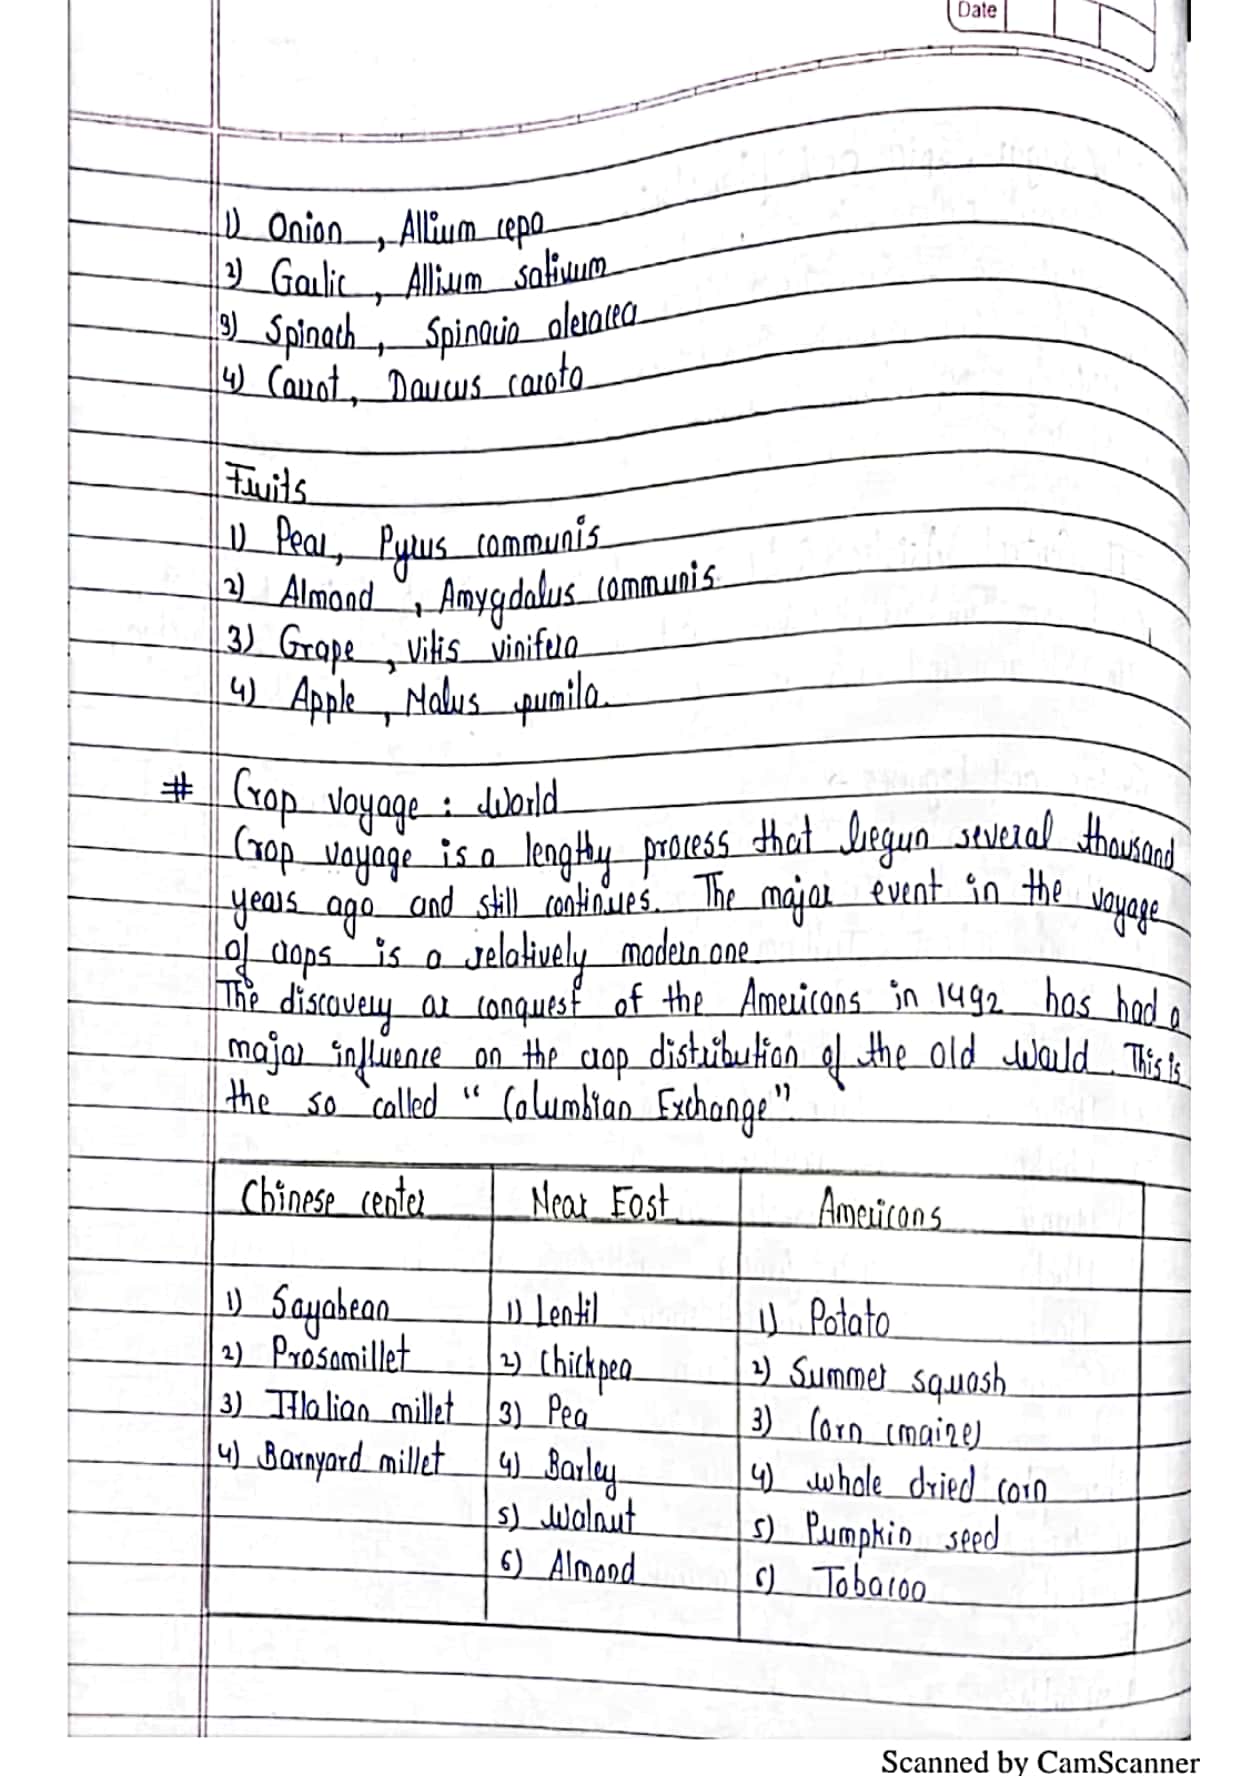 Date
1) Onion , Allium cepa
2) Garlic , Allium sativum
3) Spinach , Spinacia oleracea
4) Carrot, Daucus carota
Fruits
1) Pear, Pyrus communis
2) Almond , Amygdalus communis
3) Grape , Vitis vinifera
4) Apple , Malus pumila.
# Crop voyage : World
Crop voyage is a lengthy process that begun several thousand
years ago and still continues. The major event in the voyage
of crops is a relatively modern one
The discovery or conquest of the Americans in 1492 has had a
major influence on the crop distribution of the old world. This is
the so called "Columbian Exchange"
Chinese center Near East Americans
1) Soyabean 1) Lentil 1) Potato
2) Prosomillet 2) Chickpea 2) Summer squash
3) Itlalian millet 3) Pea 3) Corn (maize)
4) Barnyard millet 4) Barley 4) whole dried corn
5) Walnut 5) Pumpkin seed
6) Almond 6) Tobacoo
Scanned by CamScanner